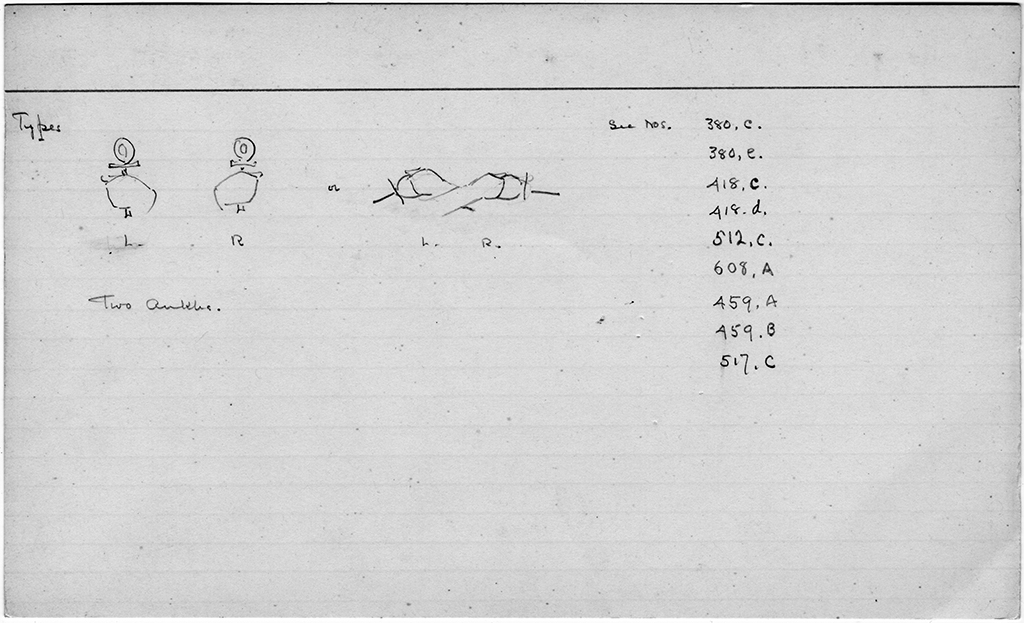 Types
or
L. R L. R.
Two ankhs.
See Nos. 380, c.
380, e.
418, c.
418. d.
512, c.
608, A
459, A
459. B
517. C